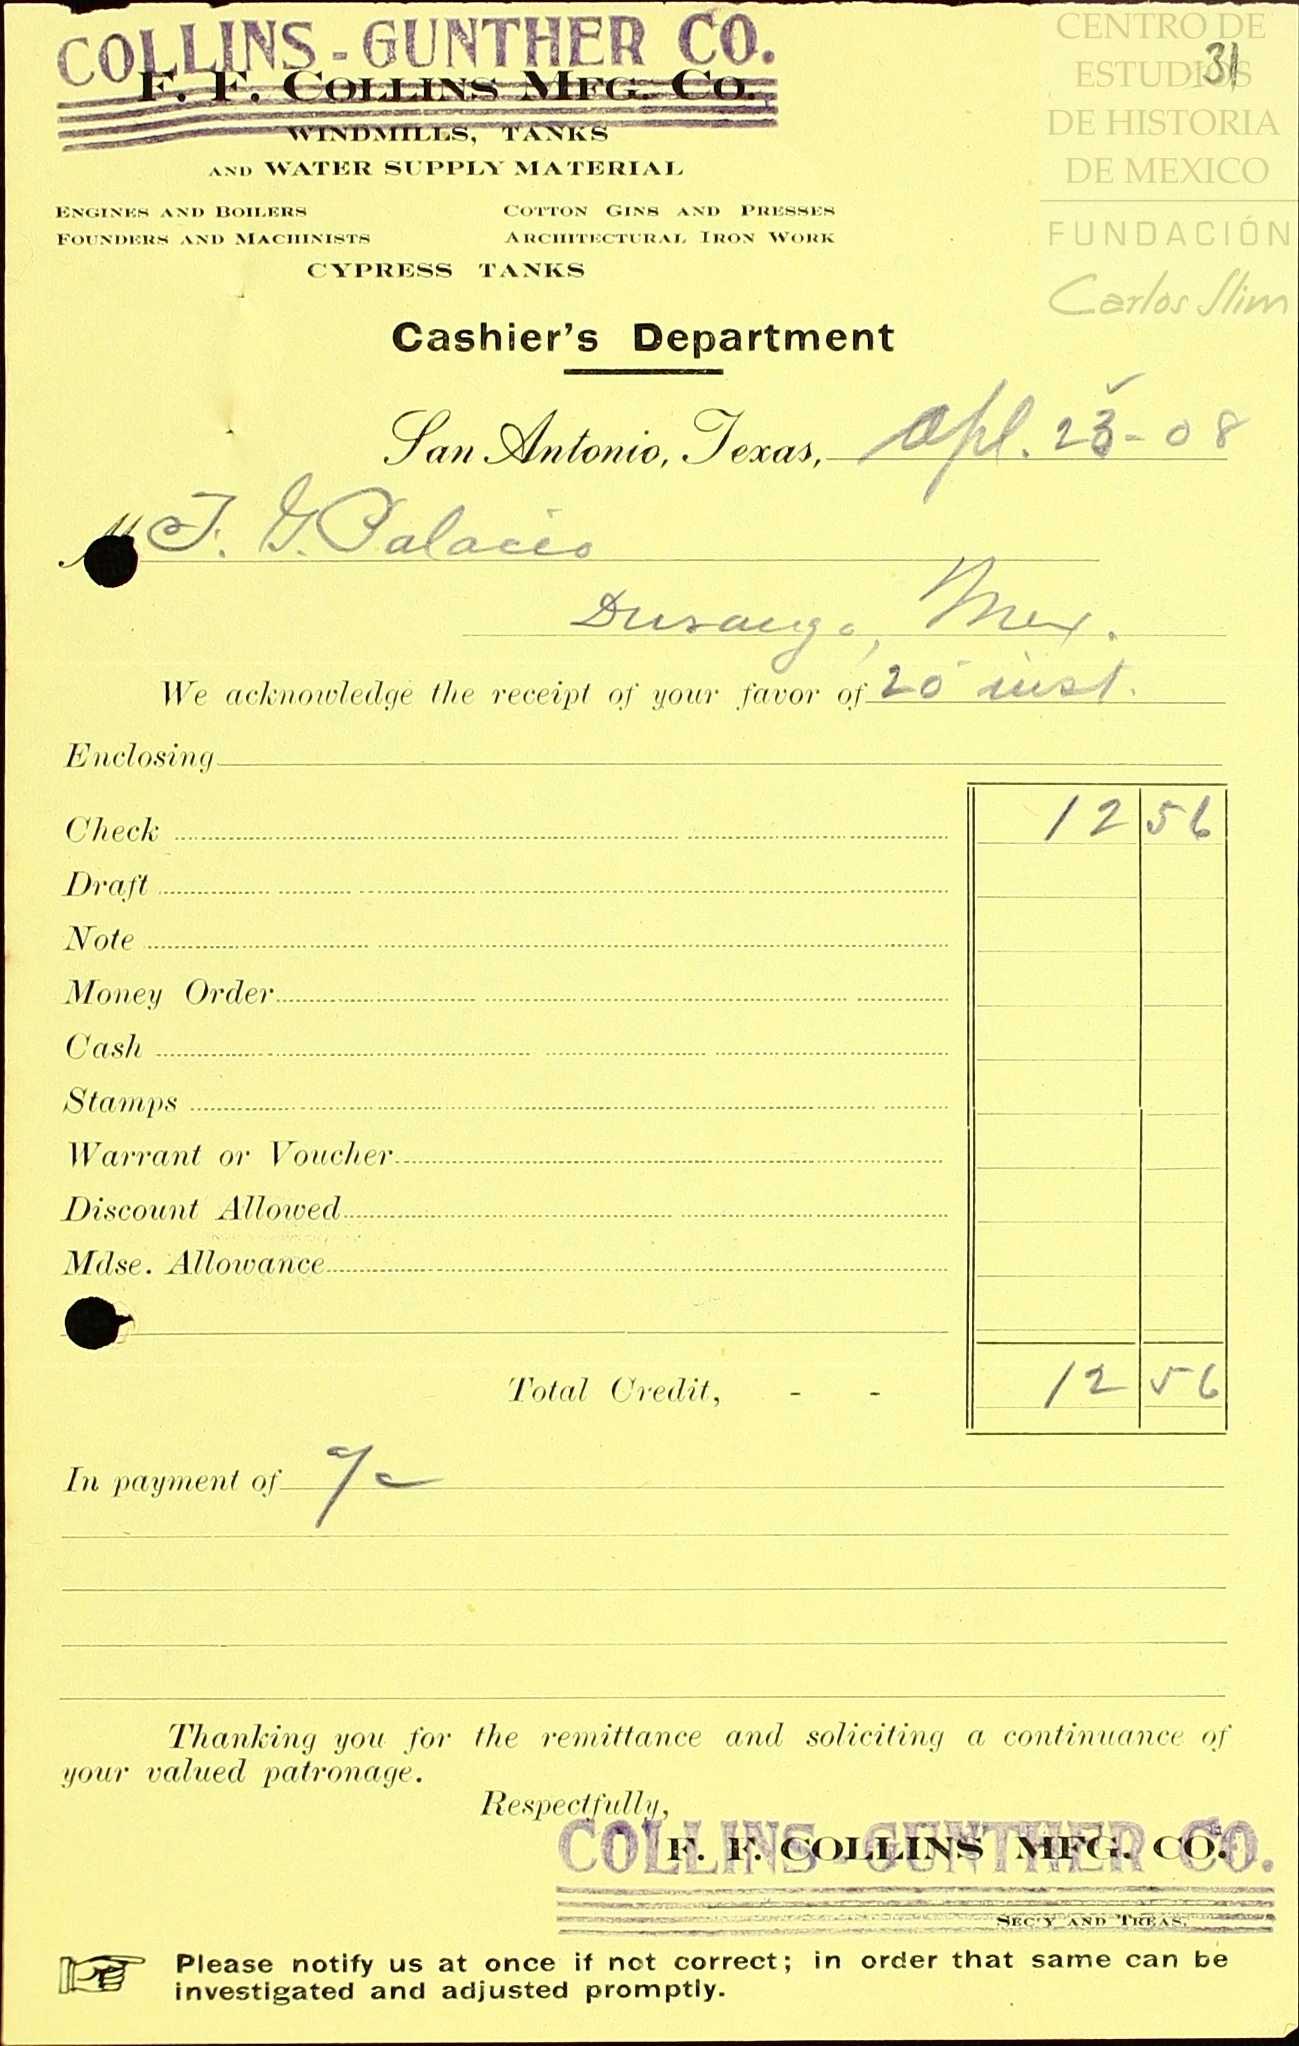 COLLINS-GUNTHER CO.
F. F. COLLINS MFG. CO.
WINDMILLS, TANKS
AND WATER SUPPLY MATERIAL
ENGINES AND BOILERS COTTON GINS AND PRESSES
FOUNDERS AND MACHINISTS ARCHITECTURAL IRON WORK
CYPRESS TANKS
CENTRO DE
ESTUDIOS
31
DE HISTORIA
DE MEXICO
FUNDACIÓN
Carlos Slim
Cashier's Department
San Antonio, Texas, Apl. 23-08
M F. G. Palacio
Durango, Mex.
We acknowledge the receipt of your favor of 20 inst.
Enclosing
Check 12 56
Draft
Note
Money Order
Cash
Stamps
Warrant or Voucher
Discount Allowed
Mdse. Allowance
Total Credit, - - 12 56
In payment of a/c
Thanking you for the remittance and soliciting a continuance of
your valued patronage.
Respectfully,
COLLINS-GUNTHER CO.
F. F. COLLINS MFG. CO.
SEC'Y AND TREAS.
Please notify us at once if not correct; in order that same can be
investigated and adjusted promptly.